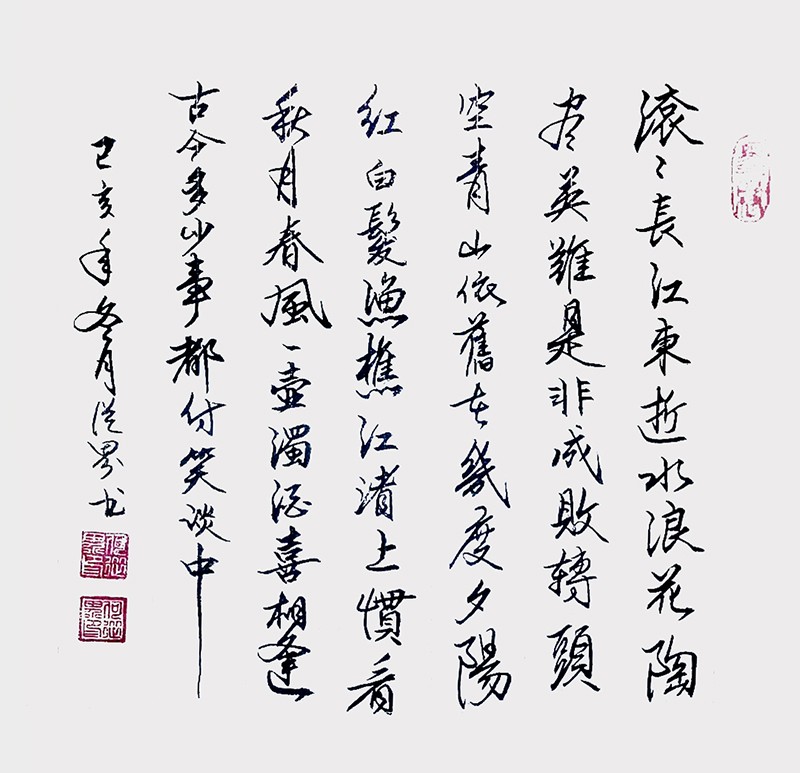 滚〻長江東逝水浪花陶
尽英雄是非成敗轉頭
空青山依舊在幾度夕陽
紅白髮漁樵江渚上慣看
秋月春風一壺濁酒喜相逢
古今多少事都付笑談中
己亥年冬月從界书